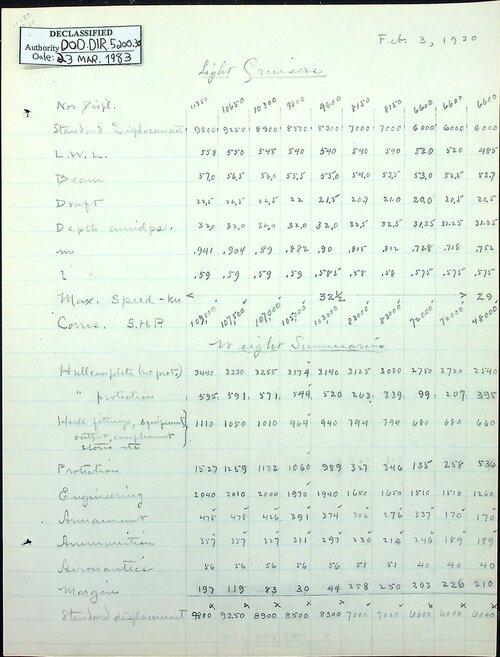 DECLASSIFIED
Authority DOD.DIR.5200.30
Date: 23 MAR. 1983
Feb. 3, 1930
Light Cruisers
Nor. Displ. 11350 10650 10300 9800 9600 8150 8150 6600 6600 6600
Standard Displacement 9800 9250 8900 8500 8300 7000 7000 6000 6000 6000
L.W.L. 558 550 545 540 540 540 540 520 520 485
Beam 57.0 56.5 56.0 55.5 55.0 54.0 53.5 53.0 52.5 53.7
Draft 22.5 22.5 22.5 22 21.5 20.9 21.0 20.0 20.5 20.5
Depth amidps. 32.0 32.0 32.0 32.0 32.0 32.5 32.5 31.25 31.25 31.25
m .941 .904 .89 .882 .90 .815 .812 .728 .718 .752
l .59 .59 .59 .59 .585 .58 .58 .575 .575 .575
Max. Speed - kn < 32½ > 29
Corres. S.H.P. 109,000 107,500 107,000 105,000 103,000 83000 83000 72000 72000 48000
Weight Summaries
Hull complete (no prot.) 3440 3330 3255 3174 3140 3125 3080 2750 2720 2540
" protection 595 591 571 544 520 263 339 99 207 395
Hull fittings, equipment, 1110 1050 1010 964 940 794 794 680 680 660
outfit, complement
stores etc
Protection 1527 1259 1172 1060 989 327 346 135 258 536
Engineering 2040 2010 2000 1970 1940 1650 1650 1510 1510 1260
Armament 478 478 426 391 374 302 276 337 170 170
Ammunition 357 357 327 311 297 230 214 246 189 189
Aeronautics 56 56 56 56 56 51 51 40 40 40
Margin 197 119 83 30 44 258 250 203 226 210
Standard displacement 9800 9250 8900 8500 8300 7000 7000 6000 6000 6000